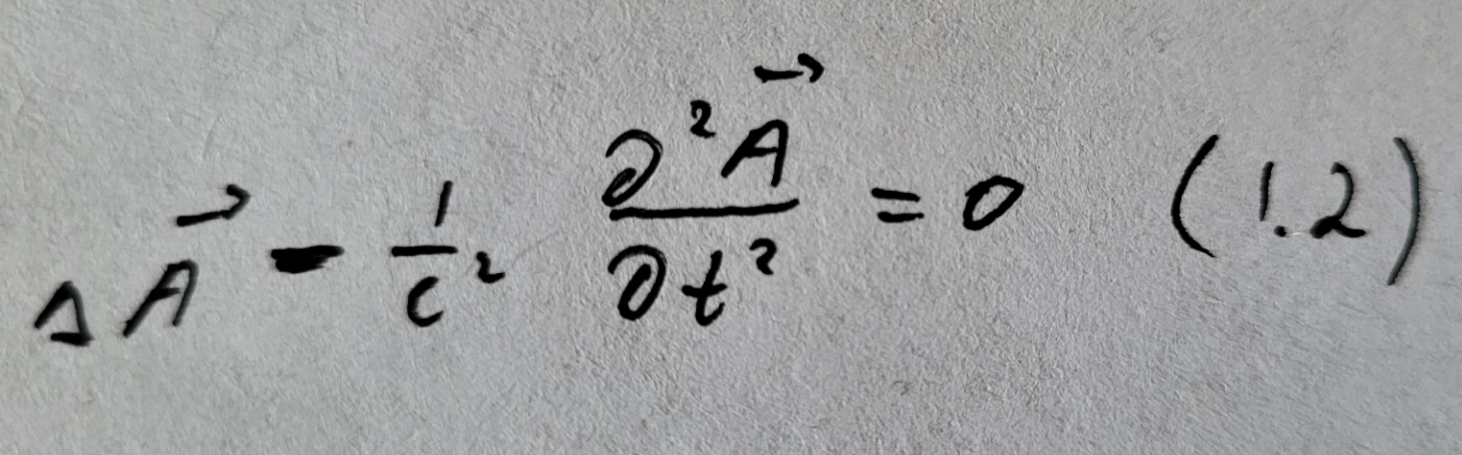 $\Delta \vec{A} - \frac{1}{c^2} \frac{\partial^2 \vec{A}}{\partial t^2} = 0 \quad (1.2)$